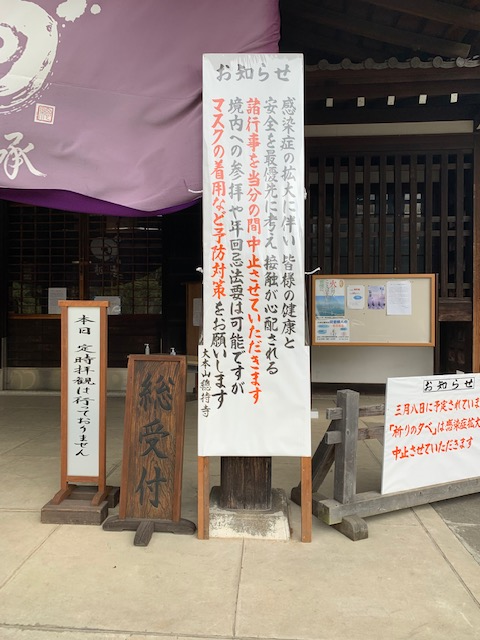 承
お知らせ
感染症の拡大に伴い 皆様の健康と
安全を最優先に考え 接触が心配される
諸行事を当分の間 中止させていただきます
境内への参拝や年回忌法要は可能ですが
マスクの着用など予防対策をお願いします
大本山總持寺
本日 定時拝観は行っておりません
総受付
お知らせ
三月八日に予定されていま
「祈りの夕べ」は感染症拡大
中止させていただきます